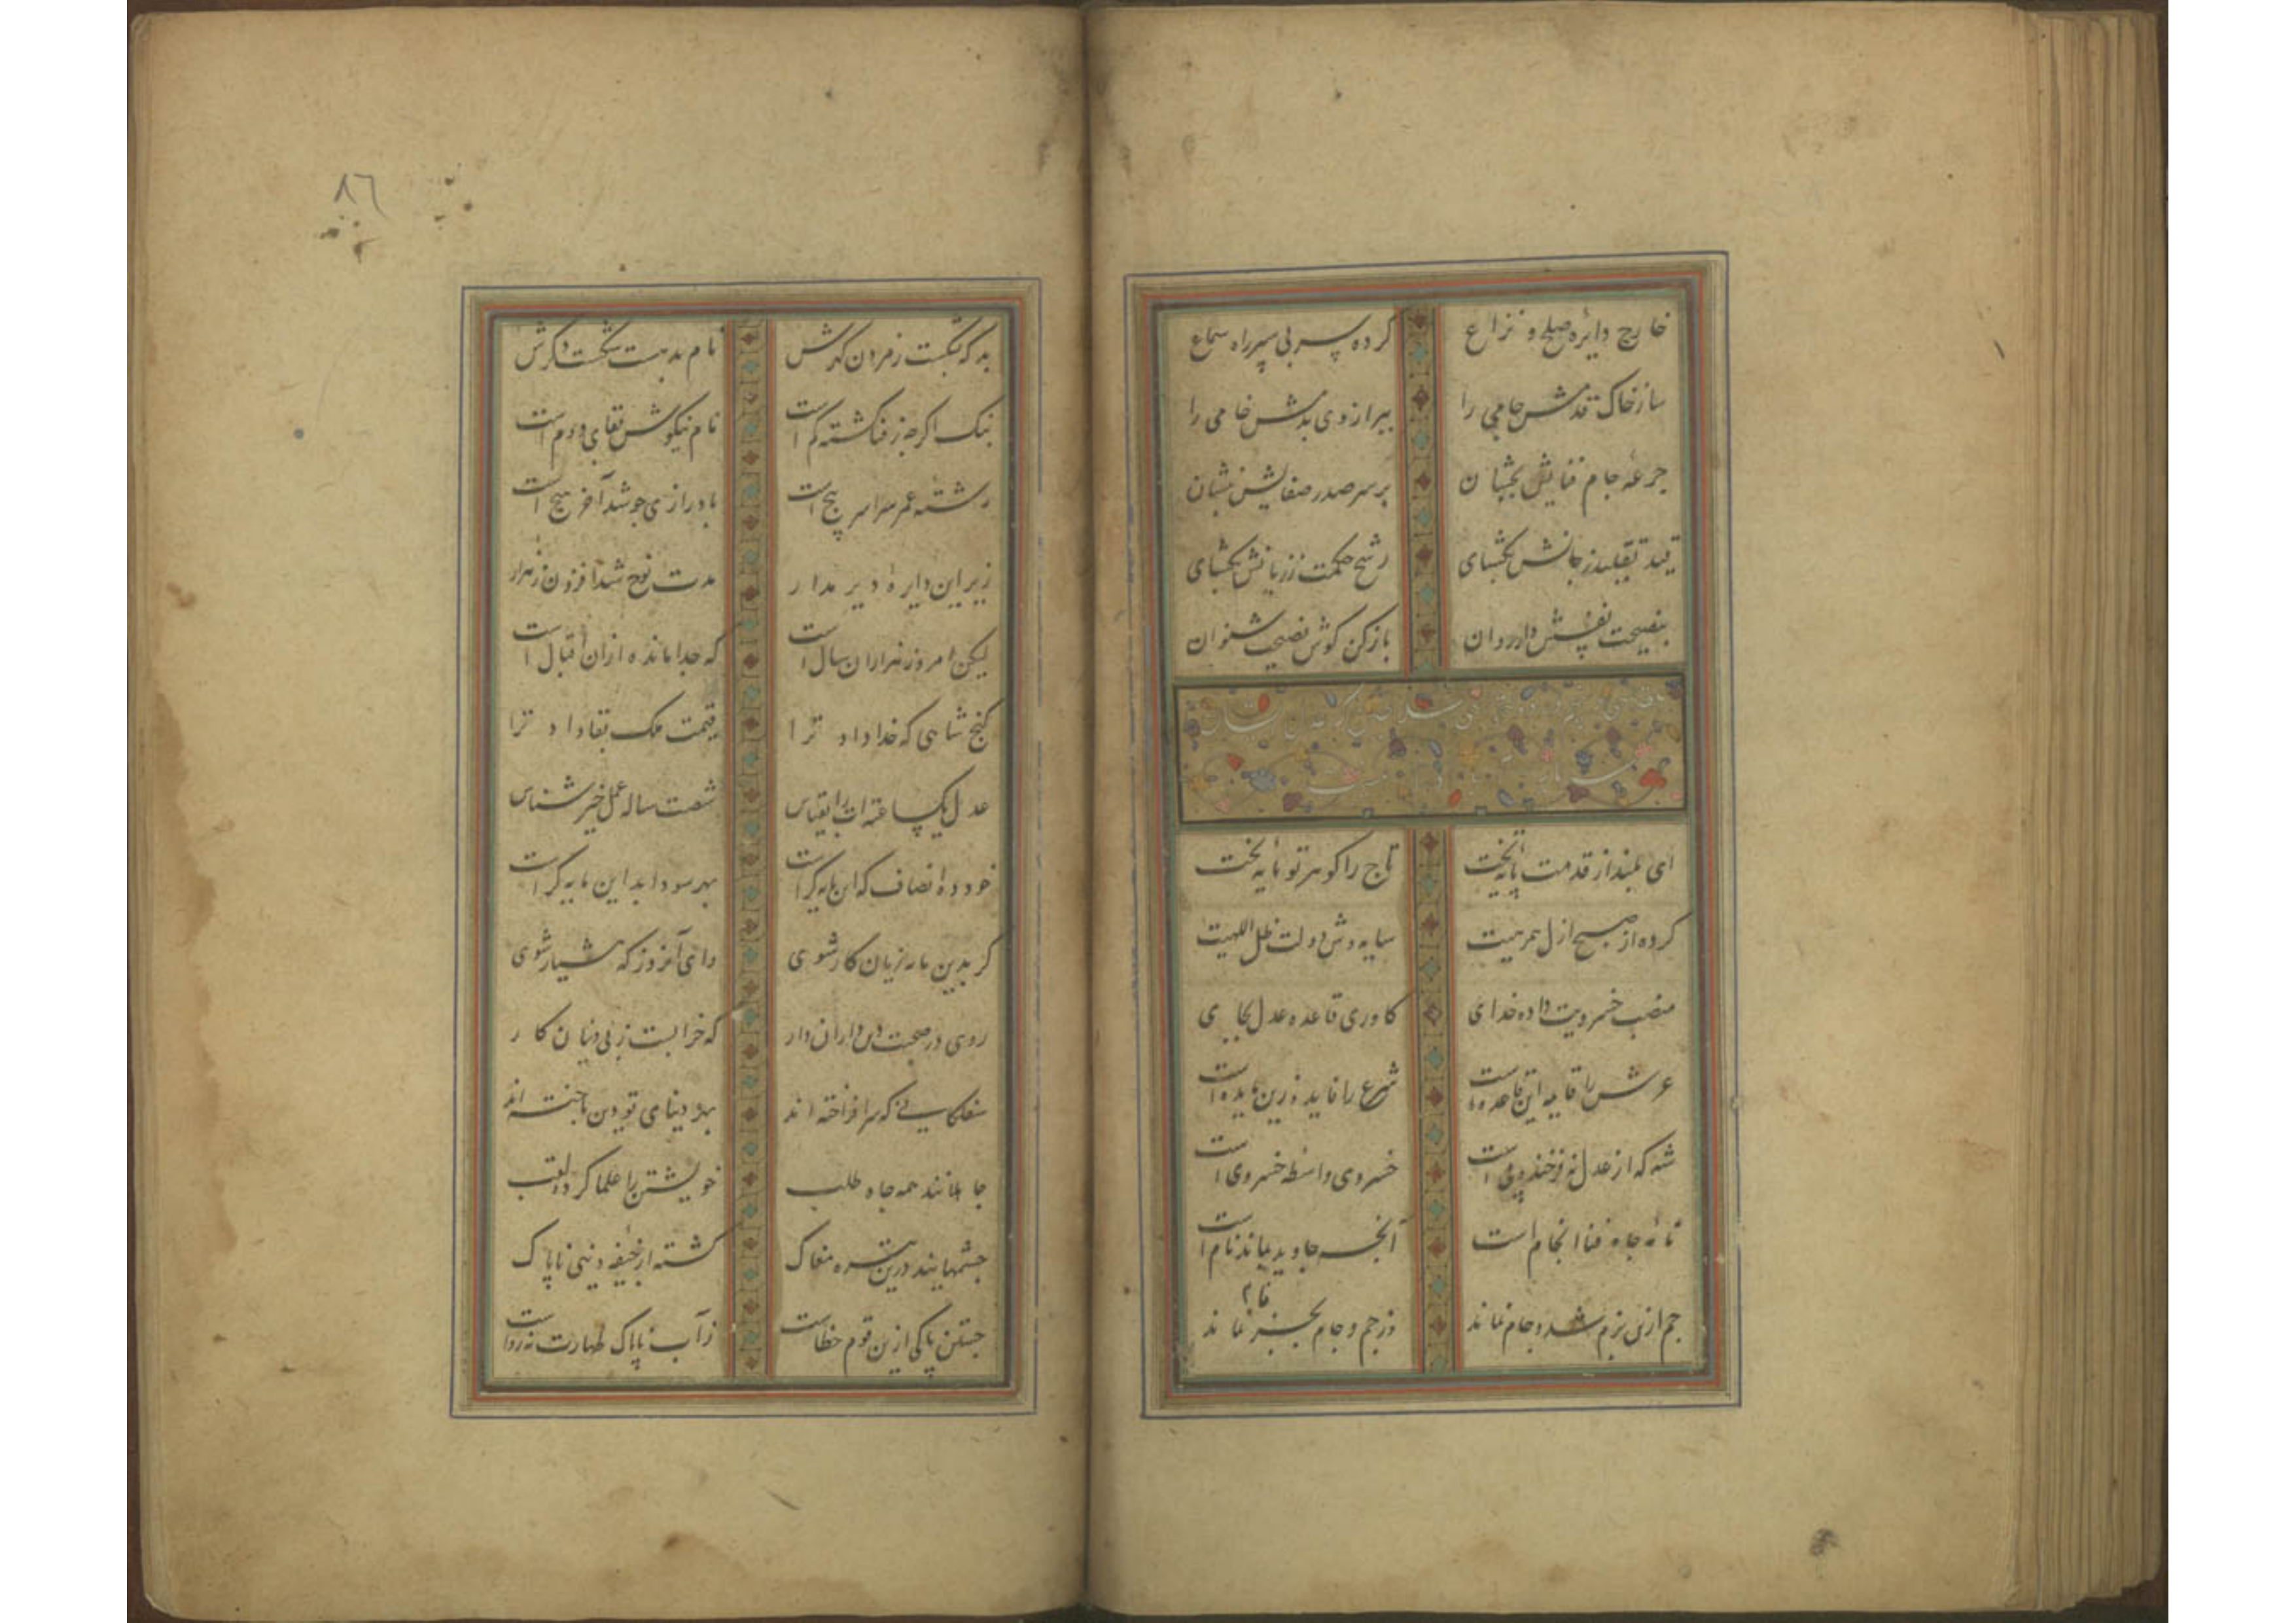 خارج دایره صلح و نزاع
کرده سر بی سپر راه سماع
ساز خاک قدمش جامی را
ببر از وی بدمش خامی را
جرعهٔ جام فنایش بچشان
بر سر صدر صفایش بنشان
قید تقلید ز جانش بگشای
رشح حکمت ز زبانش بگشای
بنصیحت نفسش دار روان
باز کن گوش نصیحت شنوان
ای بلند از قدمت پایهٔ تخت
تاج را گوهر تو مایهٔ بخت
کرده از صبح ازل همرهیت
سایه وش دولت ظل اللهیت
منصب خسرویت داده خدای
کاوری قاعده عدل بجای
عرش را قایمه این قاعده است
شرع را فایده زین مایده است
شه که از عدل نه فرخنده پی است
خسروی واسطه خسروی است
نامه جاه فنا انجام است
آنچه جاوید بماند نام است
جم ازین بزم شد و جام نماند
وز جم و جام بجز نام نماند
بد که بگسست ز مردن گهرش
نام بد هست شکست دگرش
نیک اگر چه ز فنا گشته کم است
نام نیکوش بقای دوم است
رشته عمر سراسر پیچ است
با درازی چو شد آخر هیچ است
زیر این دایرهٔ دیر مدار
مدت نوح شد افزون ز هزار
لیکن امروز هزاران سال است
که جدا مانده ازان اقبال است
گنج شاهی که خدا داد ترا
قیمت ملک بقا داد ترا
عدل یکساعته ات را بقیاس
شصت ساله عمل خیر شناس
خود ده انصاف که این مایه کراست
بهر سودا بد این مایه کراست
گر بدین مایه زیان کار شوی
وای آنروز که هشیار شوی
روی در صحبت دین داران دار
که خرابست ز بی دینان کار
سفلگانی که سر افراخته اند
بهر دنیای تو دین باخته اند
جاهلانند همه جاه طلب
خویشتن را علما کرده لقب
چشمهایند درین تیره مغاک
گشته از جیفه دنیی ناپاک
جستن پاکی ازین قوم خطاست
ز آب ناپاک طهارت نه رواست
٨٦